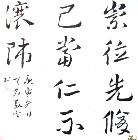 崇德先修
己當仁不
讓師